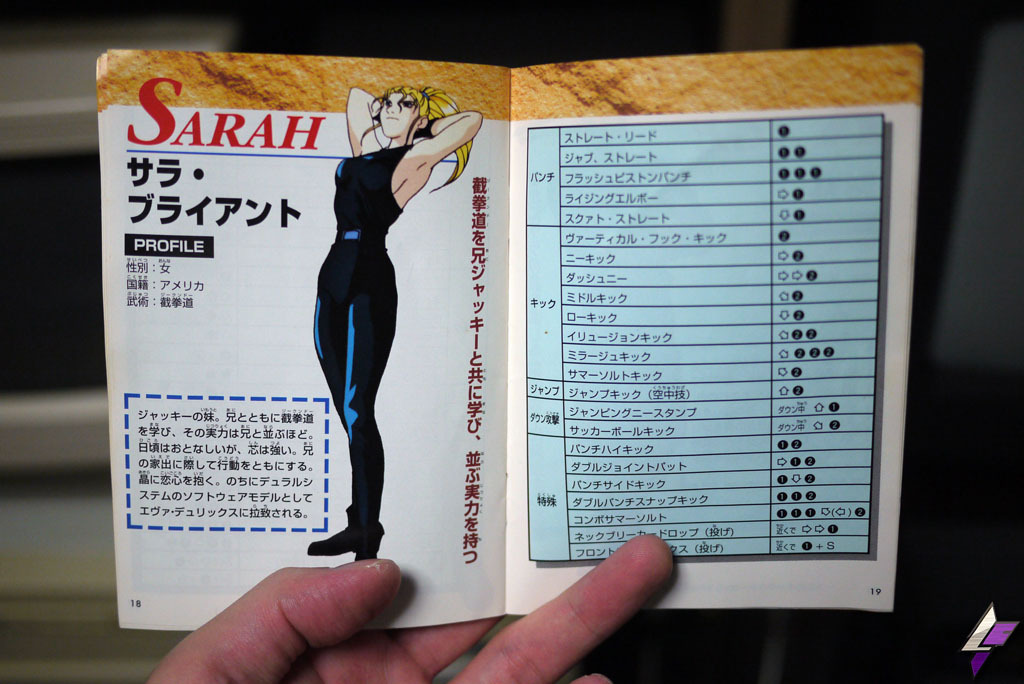 SARAH
サラ・
ブライアント
PROFILE
性別：女
国籍：アメリカ
武術：截拳道
ジャッキーの妹。兄とともに截拳道
を学び、その実力は兄と並ぶほど。
日頃はおとなしいが、芯は強い。兄
の家出に際して行動をともにする。
晶に恋心を抱く。のちにデュラルシ
ステムのソフトウェアモデルとして
エヴァ・デュリックスに拉致される。
截拳道を兄ジャッキーと共に学び、並ぶ実力を持つ
18
パンチ
ストレート・リード ❶
ジャブ、ストレート ❶❶
フラッシュピストンパンチ ❶❶❶
ライジングエルボー ⇨❶
スクァト・ストレート ⇩❶
キック
ヴァーティカル・フック・キック ❷
ニーキック ⇨❷
ダッシュニー ⇨⇨❷
ミドルキック ❷
ローキック ⇩❷
イリュージョンキック ❷❷
ミラージュキック ❷❷❷
サマーソルトキック ❷
ジャンプ
ジャンプキック（空中技） ❷
ダウン攻撃
ジャンピングニースタンプ ダウン中 ⇧❶
サッカーボールキック ダウン中 ❷
特殊
パンチハイキック ❶❷
ダブルジョイントバット ⇨❶❷
パンチサイドキック ❶⇩❷
ダブルパンチスナップキック ❶❶❷
コンボサマーソルト ❶❶❶ (⇦)❷
ネックブリーカードロップ（投げ） 近くで ⇨⇨❶
フロント クス（投げ） 近くで ❶＋S
19